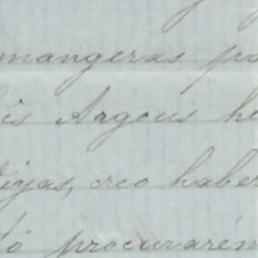 mangeras po
is Argous he
viejas, creo haber
tó procurarém